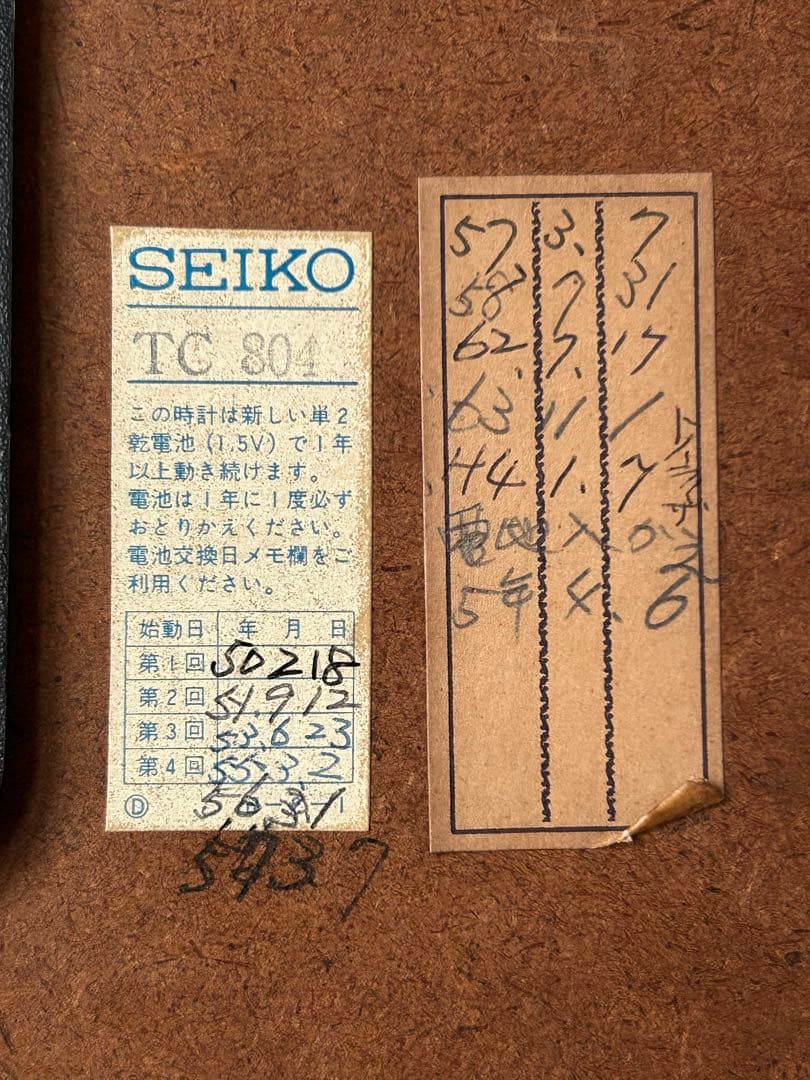 SEIKO
TC 804
この時計は新しい単2
乾電池(1.5V)で1年
以上動き続けます。
電池は1年に1度必ず
おとりかえください。
電池交換日メモ欄をご
利用ください。
始動日 年 月 日
第1回 50 2 18
第2回 51.9 12
第3回 53.6 23
第4回 55.3 2
Ⓓ 56
3 7
57 3. 7
58 7 31
62. 7. 17
63 11 1
44 1. 7
電池入
5年 4. 6